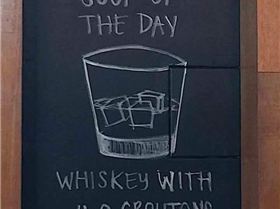 SOUP OF
THE DAY
WHISKEY WITH
CROUTONS